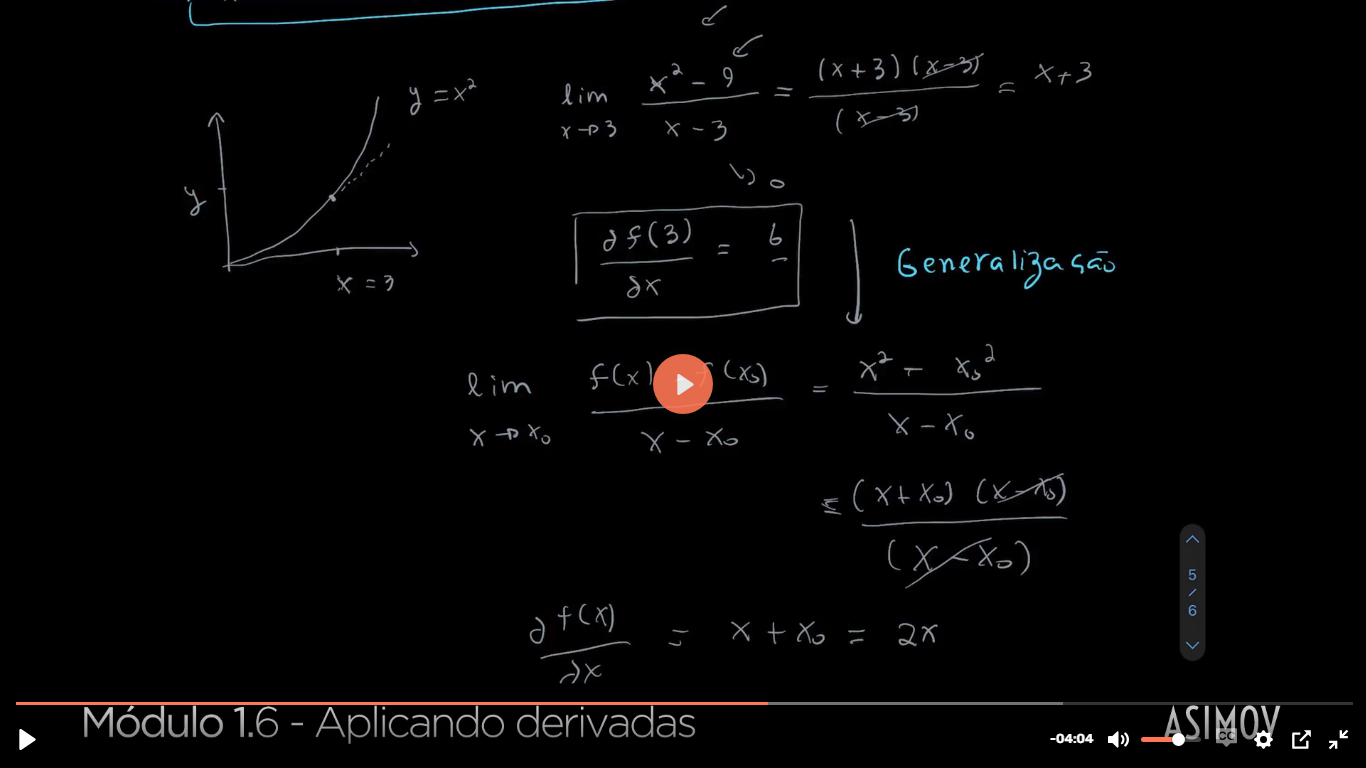 y = x²
lim x→3 x² - 9 / x - 3 = (x + 3) (x - 3) / (x - 3) = x + 3
↳ 0
y
∂f(3) / ∂x = 6
Generalização
x = 3
lim x→x₀ f(x) f(x₀) / x - x₀ = x² - x₀² / x - x₀
= (x + x₀) (x - x₀) / (x - x₀)
5
/
6
∂f(x) / ∂x = x + x₀ = 2x
Módulo 1.6 - Aplicando derivadas
ASIMOV
-04:04
CC